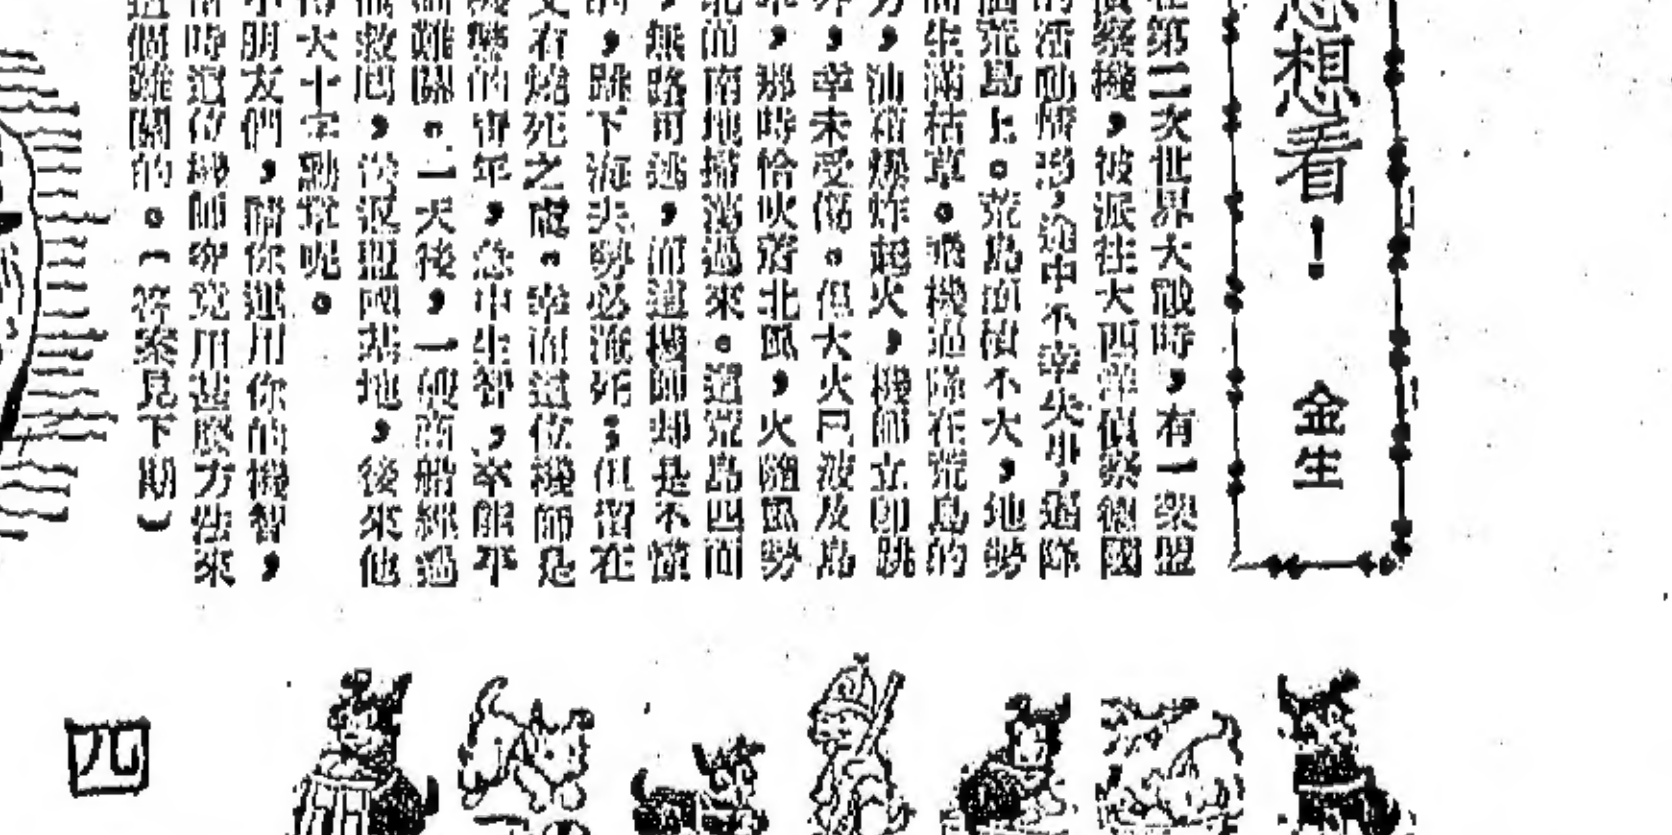 想想看！
金生
在第二次世界大戰時，有一架盟
偵察機，被派往大西洋偵察德國
的活動情形，途中不幸失事，迫降
個荒島上。荒島面積不大，地勢
而生滿枯草。飛機迫降在荒島的
方，油箱爆炸起火，機師立即跳
外，幸未受傷。但大火已波及島
草，那時恰吹著北風，火隨風勢
北面南地掃蕩過來。這荒島四面
，無路可逃，而這機師却是不懂
的，跳下海去勢必淹死；但留在
又有燒死之處。幸而這位機師是
機警的青年，急中生智，卒能平
面難關。一天後，一艘商船經過
救回，後返盟國基地，後來他
得大十字勳章呢。
小朋友們，請你運用你的機智，
當時這位機師究竟用甚麼方法來
這個難關的。（答案見下期）
四